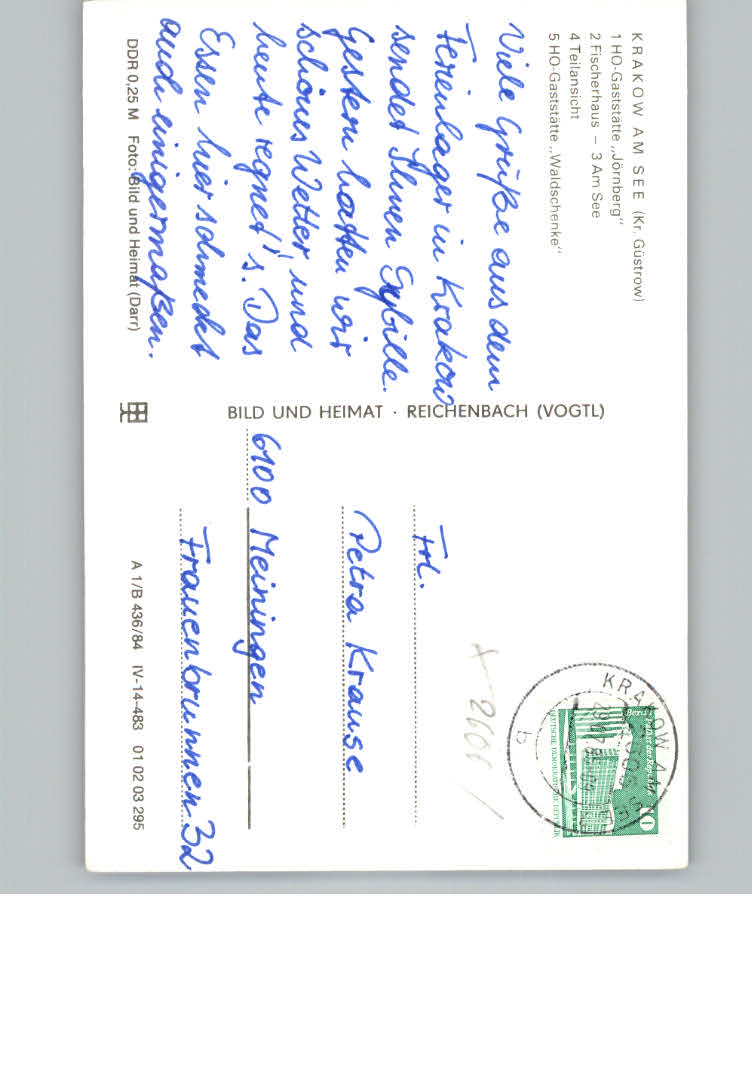 KRAKOW AM SEE (Kr. Güstrow)
1 HO-Gaststätte „Jörnberg“
2 Fischerhaus – 3 Am See
4 Teilansicht
5 HO-Gaststätte „Waldschenke“
Viele Grüße aus dem
Ferienlager in Krakow
sendet Ihnen Sybille.
Gestern hatten wir
schönes Wetter und
heute regnet's. Das
Essen hier schmeckt
auch einigermaßen.
DDR 0,25 M Foto: Bild und Heimat (Darr)
BILD UND HEIMAT · REICHENBACH (VOGTL)
KRAKOW AM SEE
b
10
DEUTSCHE DEMOKRATISCHE REPUBLIK
Frl.
Petra Krause
6100 Meiningen
Frauenbrunnen 32
A 1/B 436/84 IV-14-483 01 02 03 295